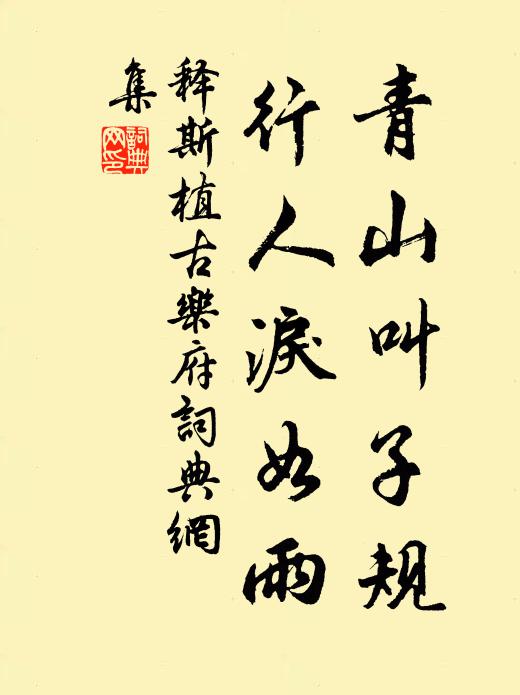 青山叫子規
行人淚如雨
释斯植古樂府詞典網
集
詞典網印